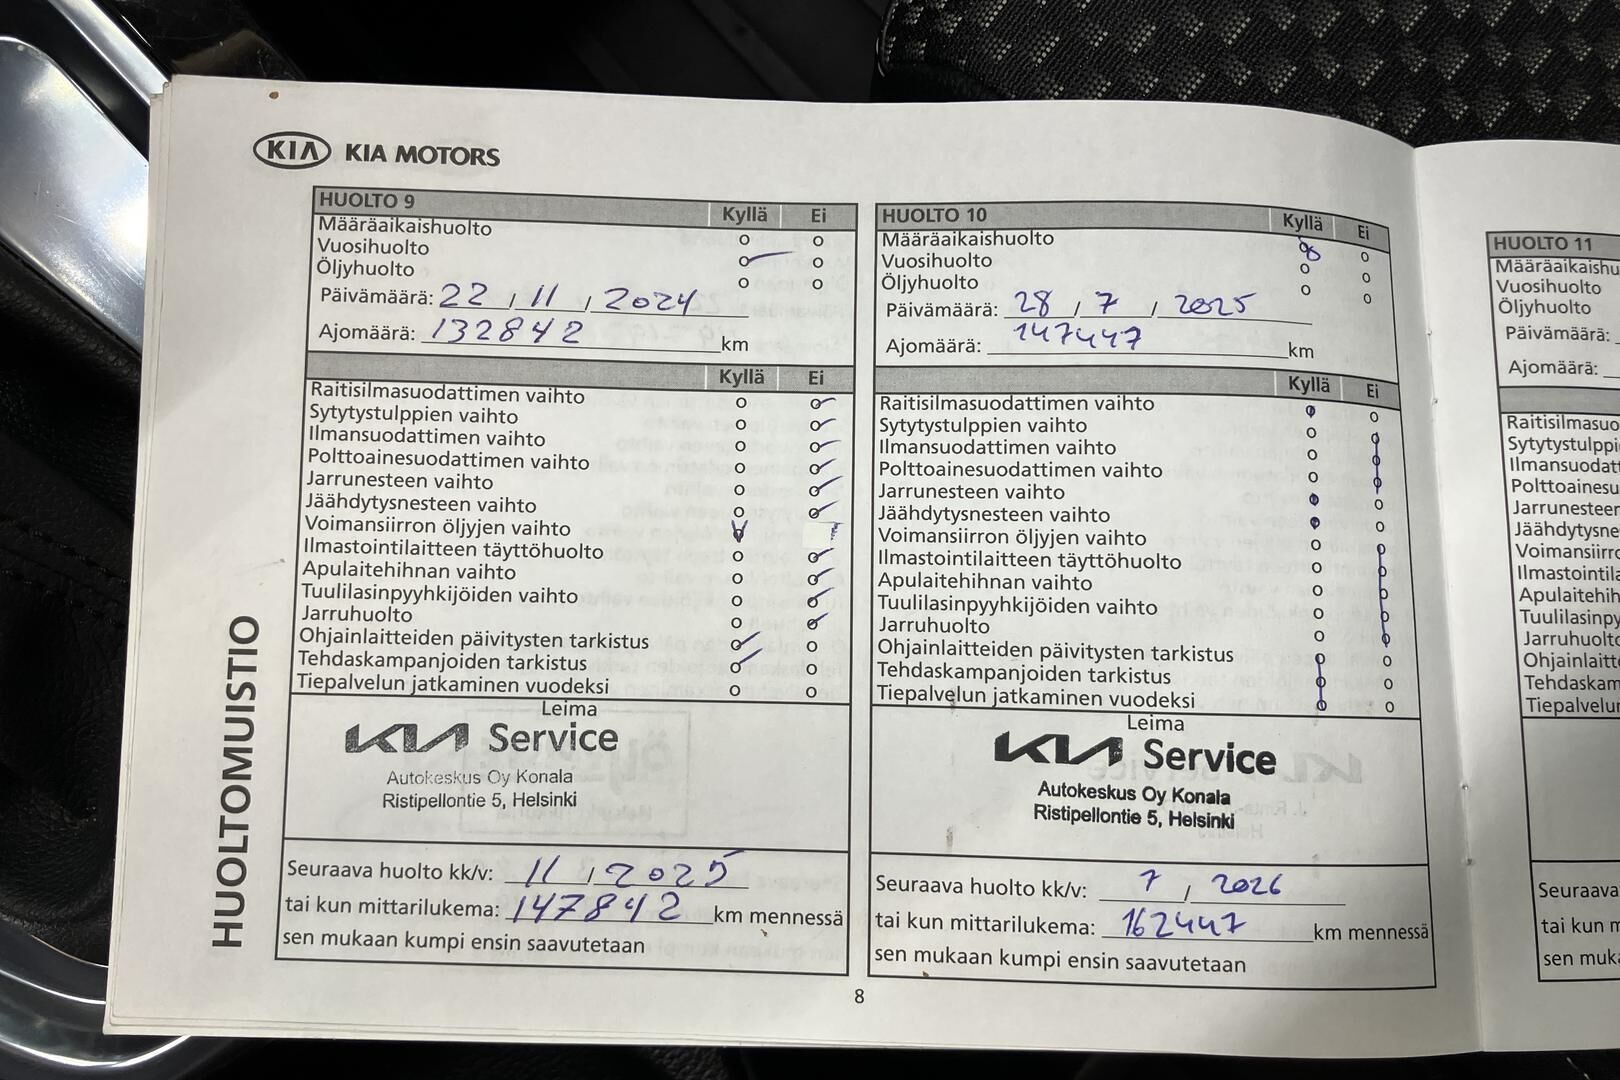 KIA KIA MOTORS
HUOLTOMUISTIO
HUOLTO 9 Kyllä Ei
Määräaikaishuolto
Vuosihuolto
Öljyhuolto
Päivämäärä: 22 / 11 / 2024
Ajomäärä: 132842 km
Kyllä Ei
Raitisilmasuodattimen vaihto
Sytytystulppien vaihto
Ilmansuodattimen vaihto
Polttoainesuodattimen vaihto
Jarrunesteen vaihto
Jäähdytysnesteen vaihto
Voimansiirron öljyjen vaihto
Ilmastointilaitteen täyttöhuolto
Apulaitehihnan vaihto
Tuulilasinpyyhkijöiden vaihto
Jarruhuolto
Ohjainlaitteiden päivitysten tarkistus
Tehdaskampanjoiden tarkistus
Tiepalvelun jatkaminen vuodeksi
Leima
KIA Service
Autokeskus Oy Konala
Ristipellontie 5, Helsinki
Seuraava huolto kk/v: 11 / 2025
tai kun mittarilukema: 147842 km mennessä
sen mukaan kumpi ensin saavutetaan
HUOLTO 10 Kyllä Ei
Määräaikaishuolto
Vuosihuolto
Öljyhuolto
Päivämäärä: 28 / 7 / 2025
Ajomäärä: 147447 km
Kyllä Ei
Raitisilmasuodattimen vaihto
Sytytystulppien vaihto
Ilmansuodattimen vaihto
Polttoainesuodattimen vaihto
Jarrunesteen vaihto
Jäähdytysnesteen vaihto
Voimansiirron öljyjen vaihto
Ilmastointilaitteen täyttöhuolto
Apulaitehihnan vaihto
Tuulilasinpyyhkijöiden vaihto
Jarruhuolto
Ohjainlaitteiden päivitysten tarkistus
Tehdaskampanjoiden tarkistus
Tiepalvelun jatkaminen vuodeksi
Leima
KIA Service
Autokeskus Oy Konala
Ristipellontie 5, Helsinki
Seuraava huolto kk/v: 7 / 2026
tai kun mittarilukema: 162447 km mennessä
sen mukaan kumpi ensin saavutetaan
8
HUOLTO 11
Määräaikaishu
Vuosihuolto
Öljyhuolto
Päivämäärä:
Ajomäärä:
Raitisilmasuo
Sytytystulppi
Ilmansuodat
Polttoainesu
Jarrunesteen
Jäähdytysne
Voimansiirro
Ilmastointila
Apulaitehih
Tuulilasinpy
Jarruhuolto
Ohjainlaitt
Tehdaskam
Tiepalvelun
Seuraava
tai kun m
sen muk